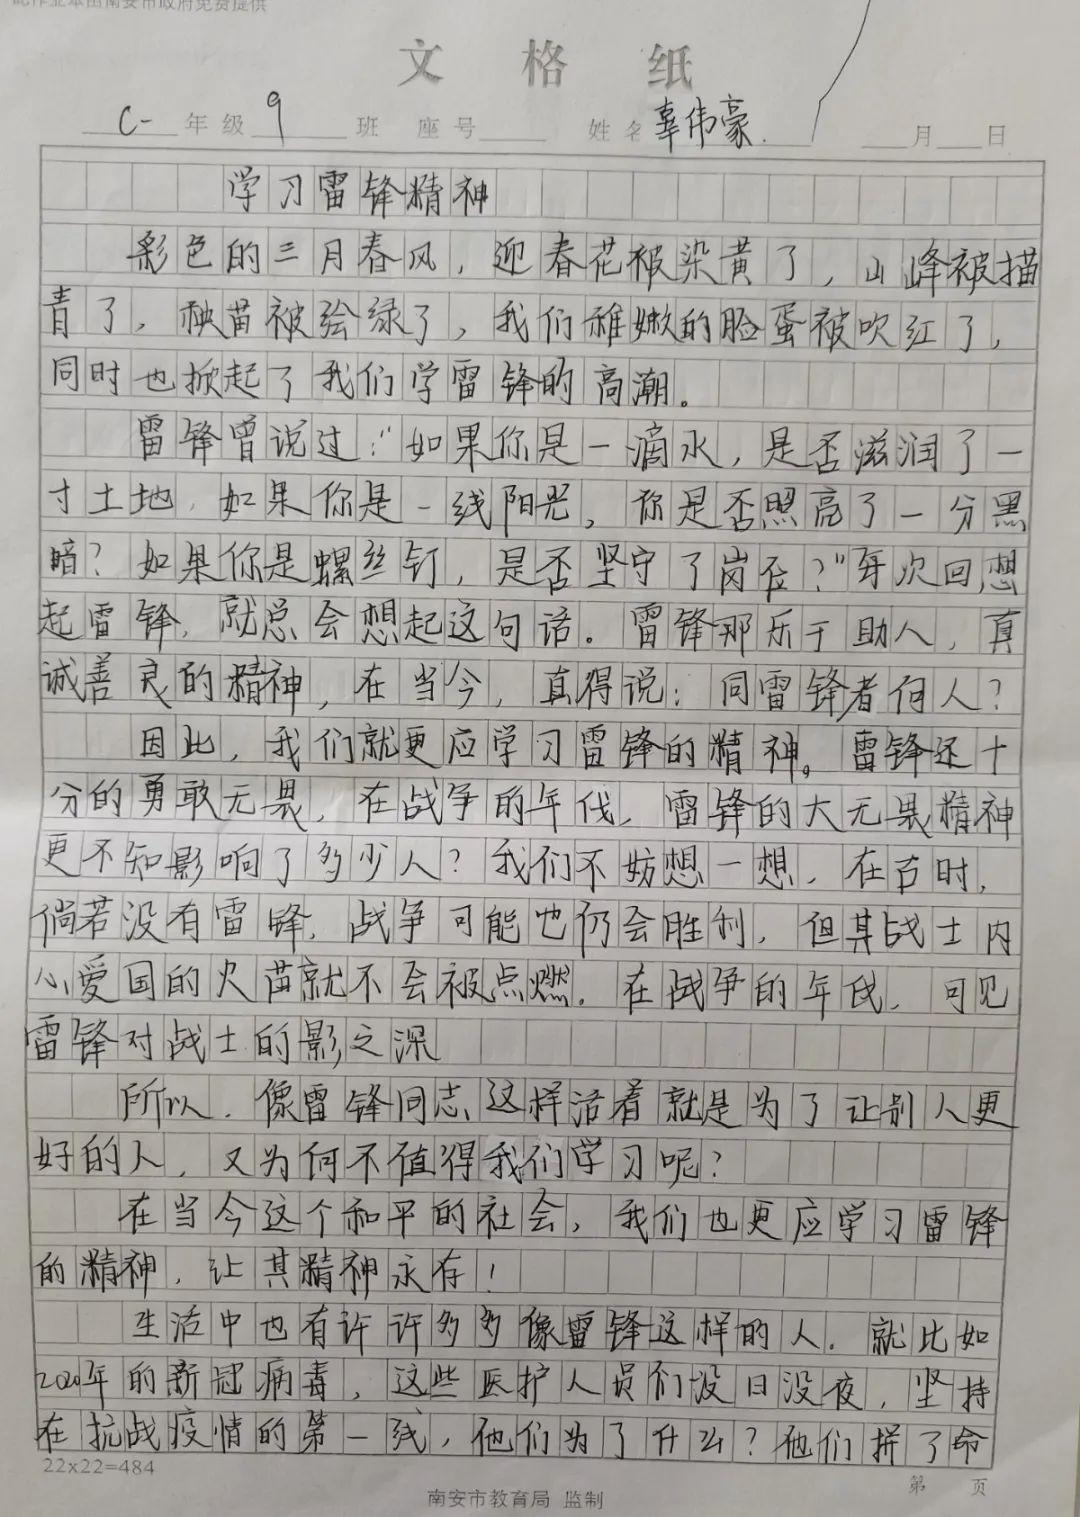 此作业本由南安市政府免费提供
文格纸
C-年级9班 座号 姓名辜伟豪 月 日
学习雷锋精神
彩色的三月春风，迎春花被染黄了，山峰被描
青了，秧苗被绘绿了，我们稚嫩的脸蛋被吹红了，
同时也掀起了我们学雷锋的高潮。
雷锋曾说过："如果你是一滴水，是否滋润了一
寸土地，如果你是一线阳光，你是否照亮了一分黑
暗？如果你是螺丝钉，是否坚守了岗位？"每次回想
起雷锋，就总会想起这句话。雷锋那乐于助人，真
诚善良的精神，在当今，真得说：同雷锋者何人？
因此，我们就更应学习雷锋的精神。雷锋还十
分的勇敢无畏，在战争的年代，雷锋的大无畏精神
更不知影响了多少人？我们不妨想一想，在古时，
倘若没有雷锋，战争可能也仍会胜利，但其战士内
心爱国的火苗就不会被点燃。在战争的年代，可见
雷锋对战士的影之深
所以，像雷锋同志这样活着就是为了让别人更
好的人，又为何不值得我们学习呢？
在当今这个和平的社会，我们也更应学习雷锋
的精神，让其精神永存！
生活中也有许许多多像雷锋这样的人，就比如
2020年的新冠病毒，这些医护人员们没日没夜，坚持
在抗战疫情的第一线，他们为了什么？他们拼了命
22x22=484
第 页
南安市教育局 监制